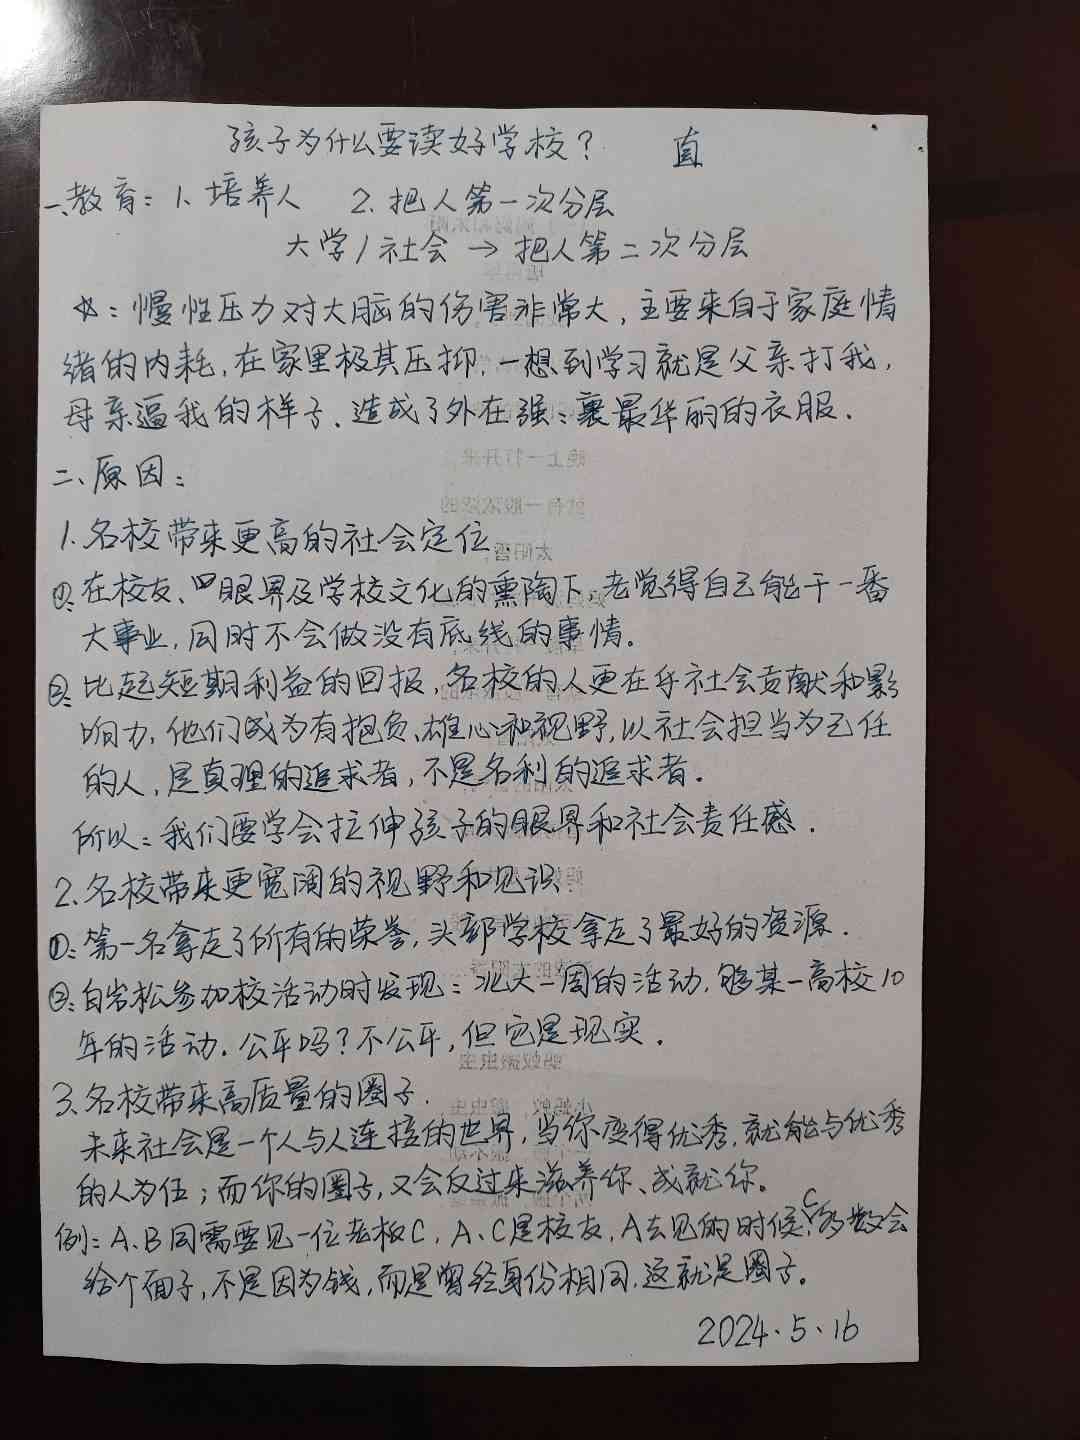 孩子为什么要读好学校？ 直
一、教育：1. 培养人 2. 把人第一次分层
大学/社会 → 把人第二次分层
：慢性压力对大脑的伤害非常大，主要来自于家庭情
绪的内耗，在家里极其压抑，一想到学习就是父亲打我，
母亲逼我的样子．造成了外在强：裹最华丽的衣服．
二、原因：
1. 名校带来更高的社会定位
①：在校友、眼界及学校文化的熏陶下，老觉得自己能干一番
大事业，同时不会做没有底线的事情。
②：比起短期利益的回报，名校的人更在乎社会贡献和影
响力，他们成为有抱负、雄心和视野，以社会担当为己任
的人，是真理的追求者，不是名利的追求者．
所以：我们要学会拉伸孩子的眼界和社会责任感．
2. 名校带来更宽阔的视野和见识
①：第一名拿走了所有的荣誉，头部学校拿走了最好的资源．
②：白岩松参加校活动时发现：北大一周的活动，够某一高校10
年的活动．公平吗？不公平，但它是现实．
3. 名校带来高质量的圈子．
未来社会是一个人与人连接的世界，当你变得优秀，就能与优秀
的人为伍；而你的圈子，又会反过来滋养你、成就你。
例：A、B同需要见一位老板C，A、C是校友，A去见的时候，C多数会
给个面子，不是因为钱，而是曾经身份相同，这就是圈子。
2024.5.16
晚上一打开来
就有一股浓浓的
太阳香，
蚂蚁搬虫虫
小蚂蚁，搬虫虫，